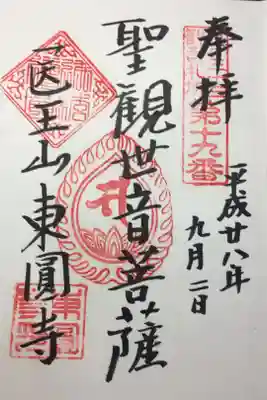 奉拝
第十九番
平成廿八年
九月二日
聖観世音菩薩
医王山東圓寺